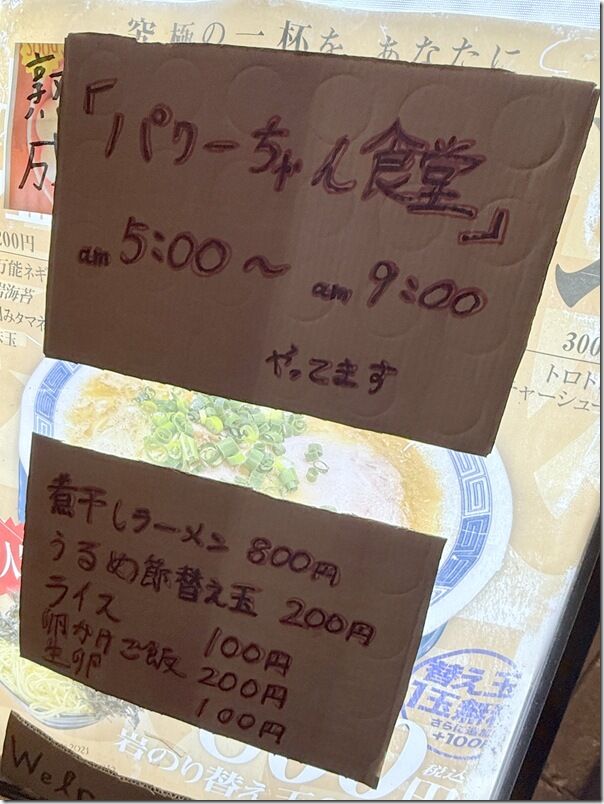 究極の一杯を あなたに
「パワーちゃん食堂」
am 5:00〜 am 9:00
やってます
200円
万能ネギ
岩海苔
300
トロト
チャーシュー
煮干しラーメン 800円
うるめ節替え玉 200円
ライス 100円
卵かけご飯 200円
生卵 100円
替え玉
1玉無
さらに追加
+100円
税込
岩のり替え玉
Welc